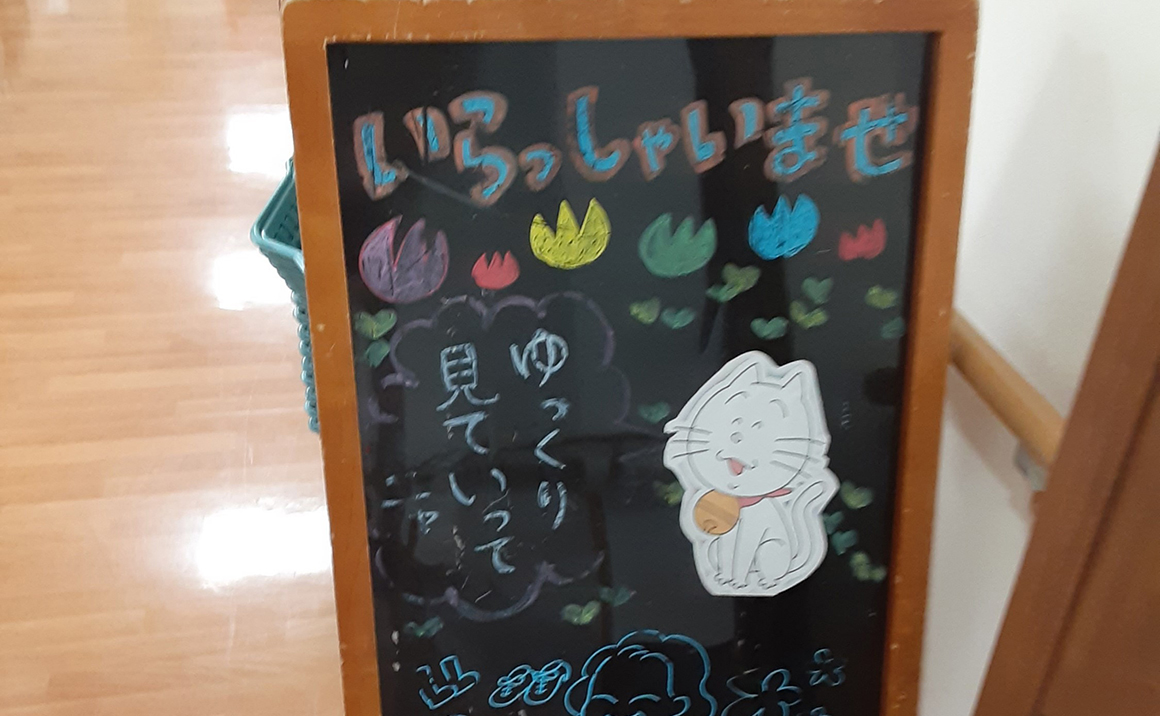 いらっしゃいませ
ゆっくり
見ていって
ニャ